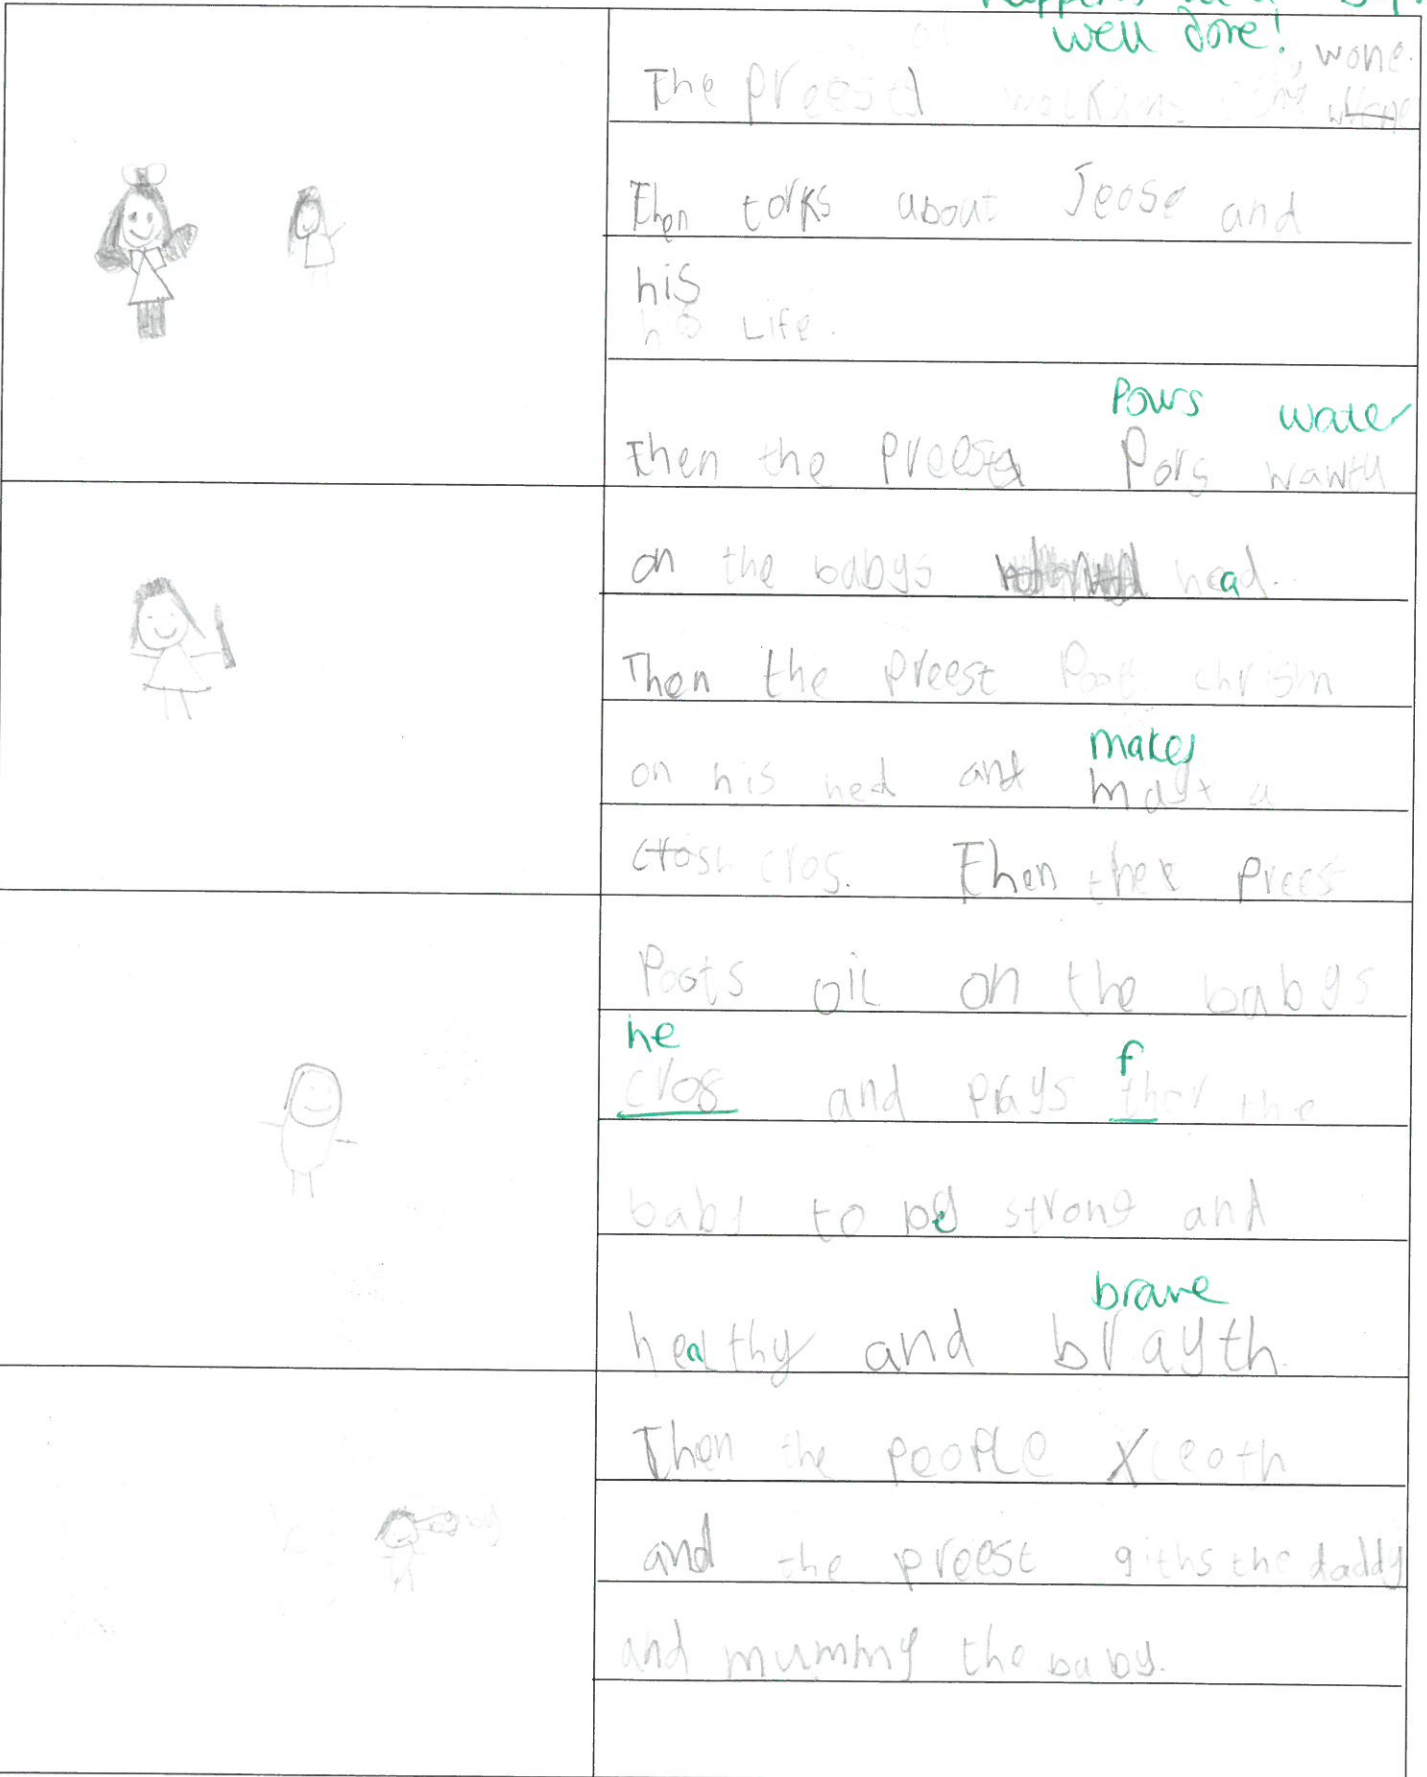 well done!
, wone.
The preest
Then torks about Jeose and
his
his Life.
Pours water
Then the preest Pors wawth
on the babys head.
Then the preest Poot chrism
makes
on his hed and mayt a
crosh cros. Then the preest
Poots oil on the babys
he f
clos and prays thor the
baby to be strong and
brave
healthy and brayth.
Then the people leoth
and the preest giths the daddy
and mummy the baby.